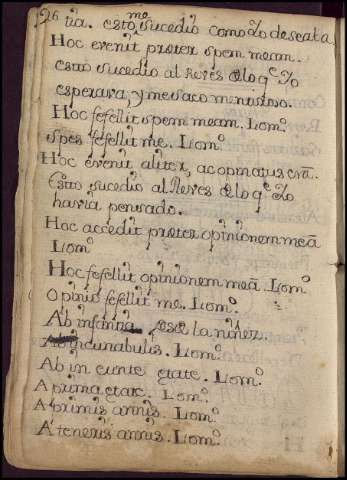 26
tia. esto me sucedio como Yo deseaba
Hoc evenit preter spem meam.
esto sucedio al Reves de lo q.e Yo
esperava, y me saco mentiroso.
Hoc fefellit spem meam. Lo m.o
Spes fefellit me. Lo m.o
Hoc evenit aliter, ac opinatus erã.
Esto sucedio al Reves de lo q.e Yo
havia pensado.
Hoc accedit preter opinionem meã
Lo m.o
Hoc fefellit opinionem meã. Lo m.o
Opinio fefellit me. Lo m.o
Ab infantia. desde la niñez.
Ab indunabulis. Lo m.o
Ab in eunte etate. Lo m.o
A prima etate. Lo m.o
A primis annis. Lo m.o
A teneris annis. Lo m.o